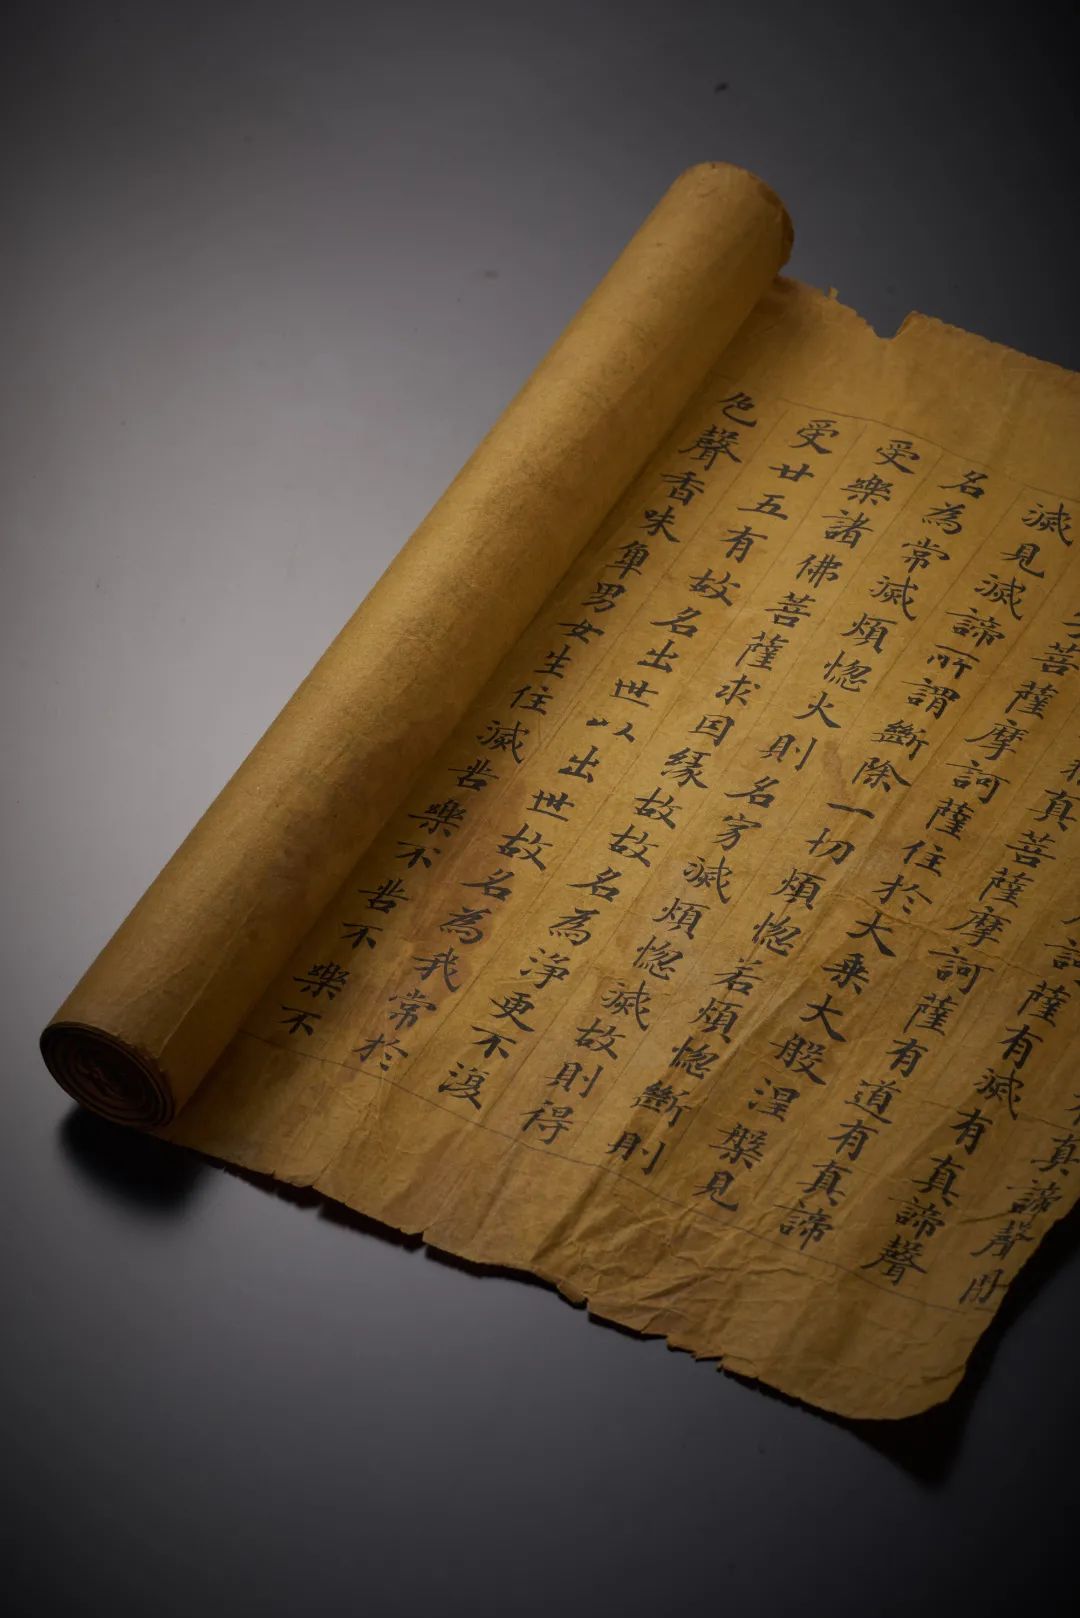 真諦聲
訶薩有滅有真諦聲
真菩薩摩訶薩有道有真諦
菩薩摩訶薩住於大乘大般涅槃見
滅見滅諦所謂斷除一切煩惱若煩惱斷則
名為常滅煩惱火則名寂滅煩惱滅故則得
受樂諸佛菩薩求因緣故故名為淨更不復
受廿五有故名出世以出世故名為我常於
色聲香味男女生住滅苦樂不苦不樂不